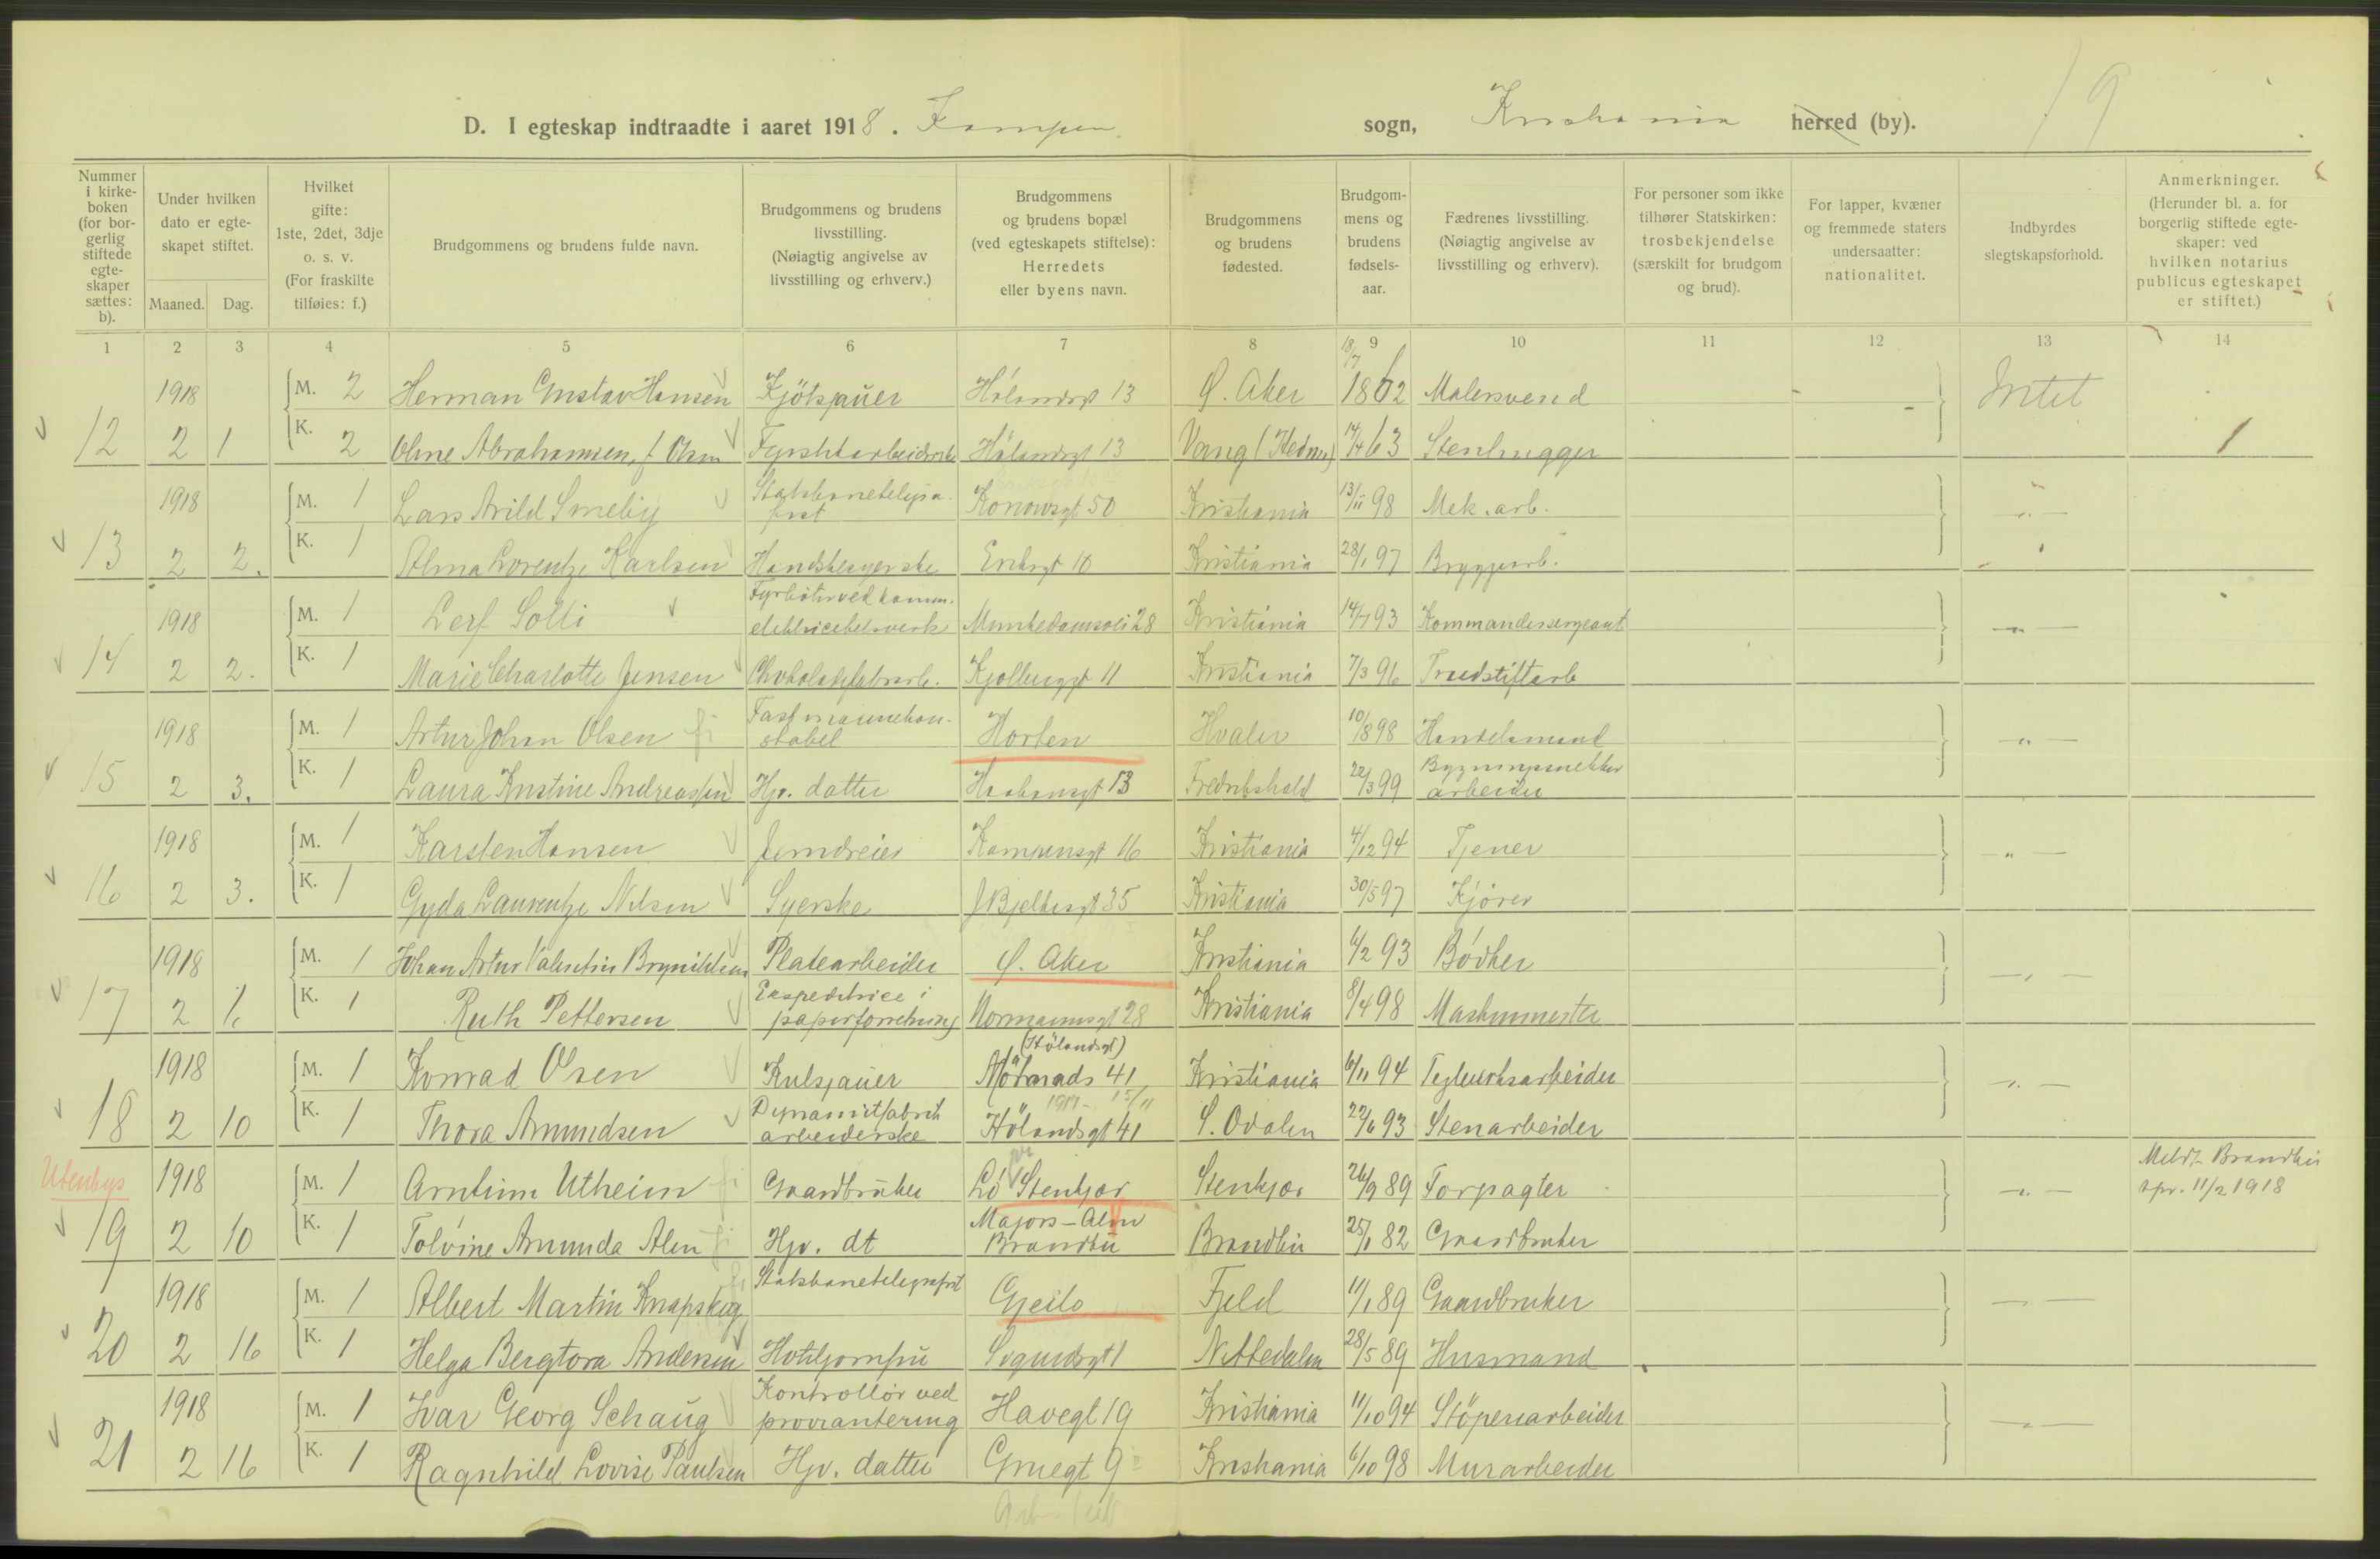 19
D. I egteskap indtraadte i aaret 1918. Kampen sogn, Kristiania herred (by).
Nummer i kirke- boken (for bor- gerlig stiftede egte- skaper sættes: b).
Under hvilken dato er egte- skapet stiftet.
Maaned. Dag.
Hvilket gifte: 1ste, 2det, 3dje o. s. v. (For fraskilte tilføies: f.)
Brudgommens og brudens fulde navn.
Brudgommens og brudens livsstilling. (Nøiagtig angivelse av livsstilling og erhverv.)
Brudgommens og brudens bopæl (ved egteskapets stiftelse): Herredets eller byens navn.
Brudgommens og brudens fødested.
Brudgom- mens og brudens fødsels- aar.
Fædrenes livsstilling. (Nøiagtig angivelse av livsstilling og erhverv).
For personer som ikke tilhører Statskirken: trosbekjendelse (særskilt for brudgom og brud).
For lapper, kvæner og fremmede staters undersaatter: nationalitet.
Indbyrdes slegtskapsforhold.
Anmerkninger. (Herunder bl. a. for borgerlig stiftede egte- skaper: ved hvilken notarius publicus egteskapet er stiftet.)
1 2 3 4 5 6 7 8 9 10 11 12 13 14
1918 M. 2 Herman Gustav Hansen Kjötsjauer Hölandsgt 13 Ø. Aker 18/7 1862 Malersvend Intet
12 2 1 K. 2 Oline Abrahamsen, f. Olsen Fyrstikarbeiderske Hölandsgt 13 Vang (Hedm.) 14/4 63 Stenhugger 1
1918 M. 1 Lars Arild Smeby Statsbanetelegra- fist Konowsgt 50 Kristiania 13/11 98 Mek. arb. -"-
13 2 2. K. 1 Alma Lorentze Karlsen Handskesyerske Eriksgt 10 Kristiania 28/1 97 Bryggearb.
1918 M. 1 Leif Solli Fyrböter ved komm. elektricitetsverk Munkedamsvei 28 Kristiania 14/7 93 Kommandersergeant -"-
14 2 2. K. 1 Marie Charlotte Jensen Chokoladefabrarb. Kjølberggt 11 Kristiania 7/3 96 Traadstiftarb
1918 M. 1 Artur Johan Olsen Fast minnekon- stabel Horten Hvaler 10/8 98 Handelsmand -"-
15 2 3. K. 1 Laura Kristine Andreassen Hjv. datter Haabansgt 13 Fredrikshald 22/3 99 Bygningssnekker arbeider
1918 M. 1 Karsten Hansen Jerndreier Kampensgt 16 Kristiania 4/12 94 Tjener -"-
16 2 3. K. 1 Gyda Laurentze Nilsen Syerske J Bjelkesgt 35 Kristiania 30/5 97 Kjører
1918 M. 1 Johan Artur Valentin Brynildsen Platearbeider Ø. Aker Kristiania 6/2 93 Bødker -"-
17 2 6. K. 1 Ruth Pettersen Ekspeditrice i papirforretning Normannsgt 28 Kristiania 8/4 98 Maskinmester
1918 M. 1 Konrad Olsen Kulsjauer (Hölandsgt) 41 Kristiania 6/11 94 Teglverksarbeider -"-
18 2 10 K. 1 Thora Amundsen Dynamitfabrik arbeiderske 1917- 15/11 Hölandsgt 41 S. Odalen 22/6 93 Stenarbeider
Utenbys 1918 M. 1 Arntinus Utheim Gaardbruker Lö pr Stenkjær Stenkjær 26/9 89 Forpagter -"- Meldt Brandbu spr. 11/2 1918
19 2 10 K. 1 Tolvine Amunda Alen Hjv. dt Majors-Alen Brandbu Brandbu 25/1 82 Gaardbruker
1918 M. 1 Albert Martin Knapskog Statsbanetelegrafist Gjeilo Fjeld 11/1 89 Gaardbruker -"-
20 2 16 K. 1 Helga Bergtora Andersen Hoteljomfru Sigurdsgt 1 Nittedalen 28/5 89 Husmand
1918 M. 1 Ivar Georg Schaug Kontrollör ved proviantering Havegt 19 Kristiania 11/10 94 Stöperiarbeider -"-
21 2 16 K. 1 Ragnhild Lovise Paulsen Hjv. datter Gruegt 9 Kristiania 6/10 98 Murarbeider